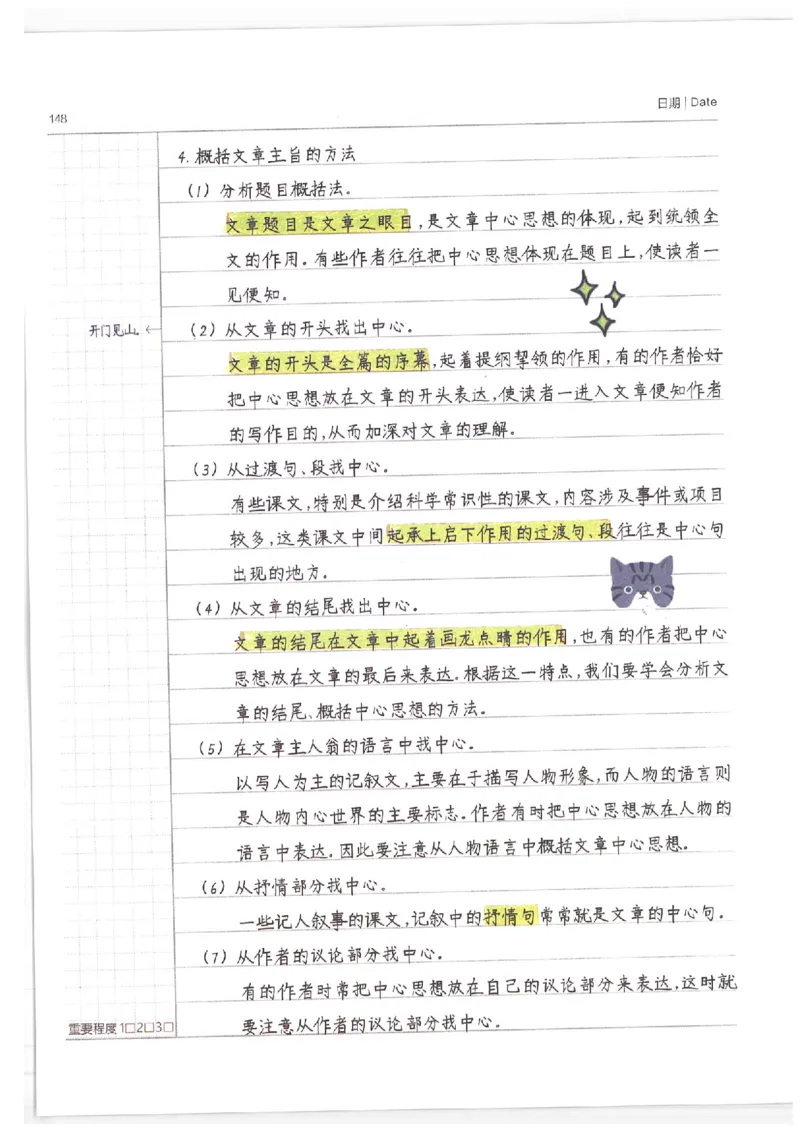 148
日期 | Date
4.概括文章主旨的方法
(1)分析题目概括法。
文章题目是文章之眼目,是文章中心思想的体现,起到统领全
文的作用。有些作者往往把中心思想体现在题目上,使读者一
见便知。
开门见山。←
(2)从文章的开头找出中心。
文章的开头是全篇的序幕,起着提纲挈领的作用,有的作者恰好
把中心思想放在文章的开头表达,使读者一进入文章便知作者
的写作目的,从而加深对文章的理解。
(3)从过渡句、段找中心。
有些课文,特别是介绍科学常识性的课文,内容涉及事件或项目
较多,这类课文中间起承上启下作用的过渡句、段往往是中心句
出现的地方。
(4)从文章的结尾找出中心。
文章的结尾在文章中起着画龙点睛的作用,也有的作者把中心
思想放在文章的最后来表达。根据这一特点,我们要学会分析文
章的结尾、概括中心思想的方法。
(5)在文章主人翁的语言中找中心。
以写人为主的记叙文,主要在于描写人物形象,而人物的语言则
是人物内心世界的主要标志。作者有时把中心思想放在人物的
语言中表达。因此要注意从人物语言中概括文章中心思想。
(6)从抒情部分找中心。
一些记人叙事的课文,记叙中的抒情句常常就是文章的中心句。
(7)从作者的议论部分找中心。
有的作者时常把中心思想放在自己的议论部分来表达,这时就
要注意从作者的议论部分找中心。
重要程度 1□2□3□